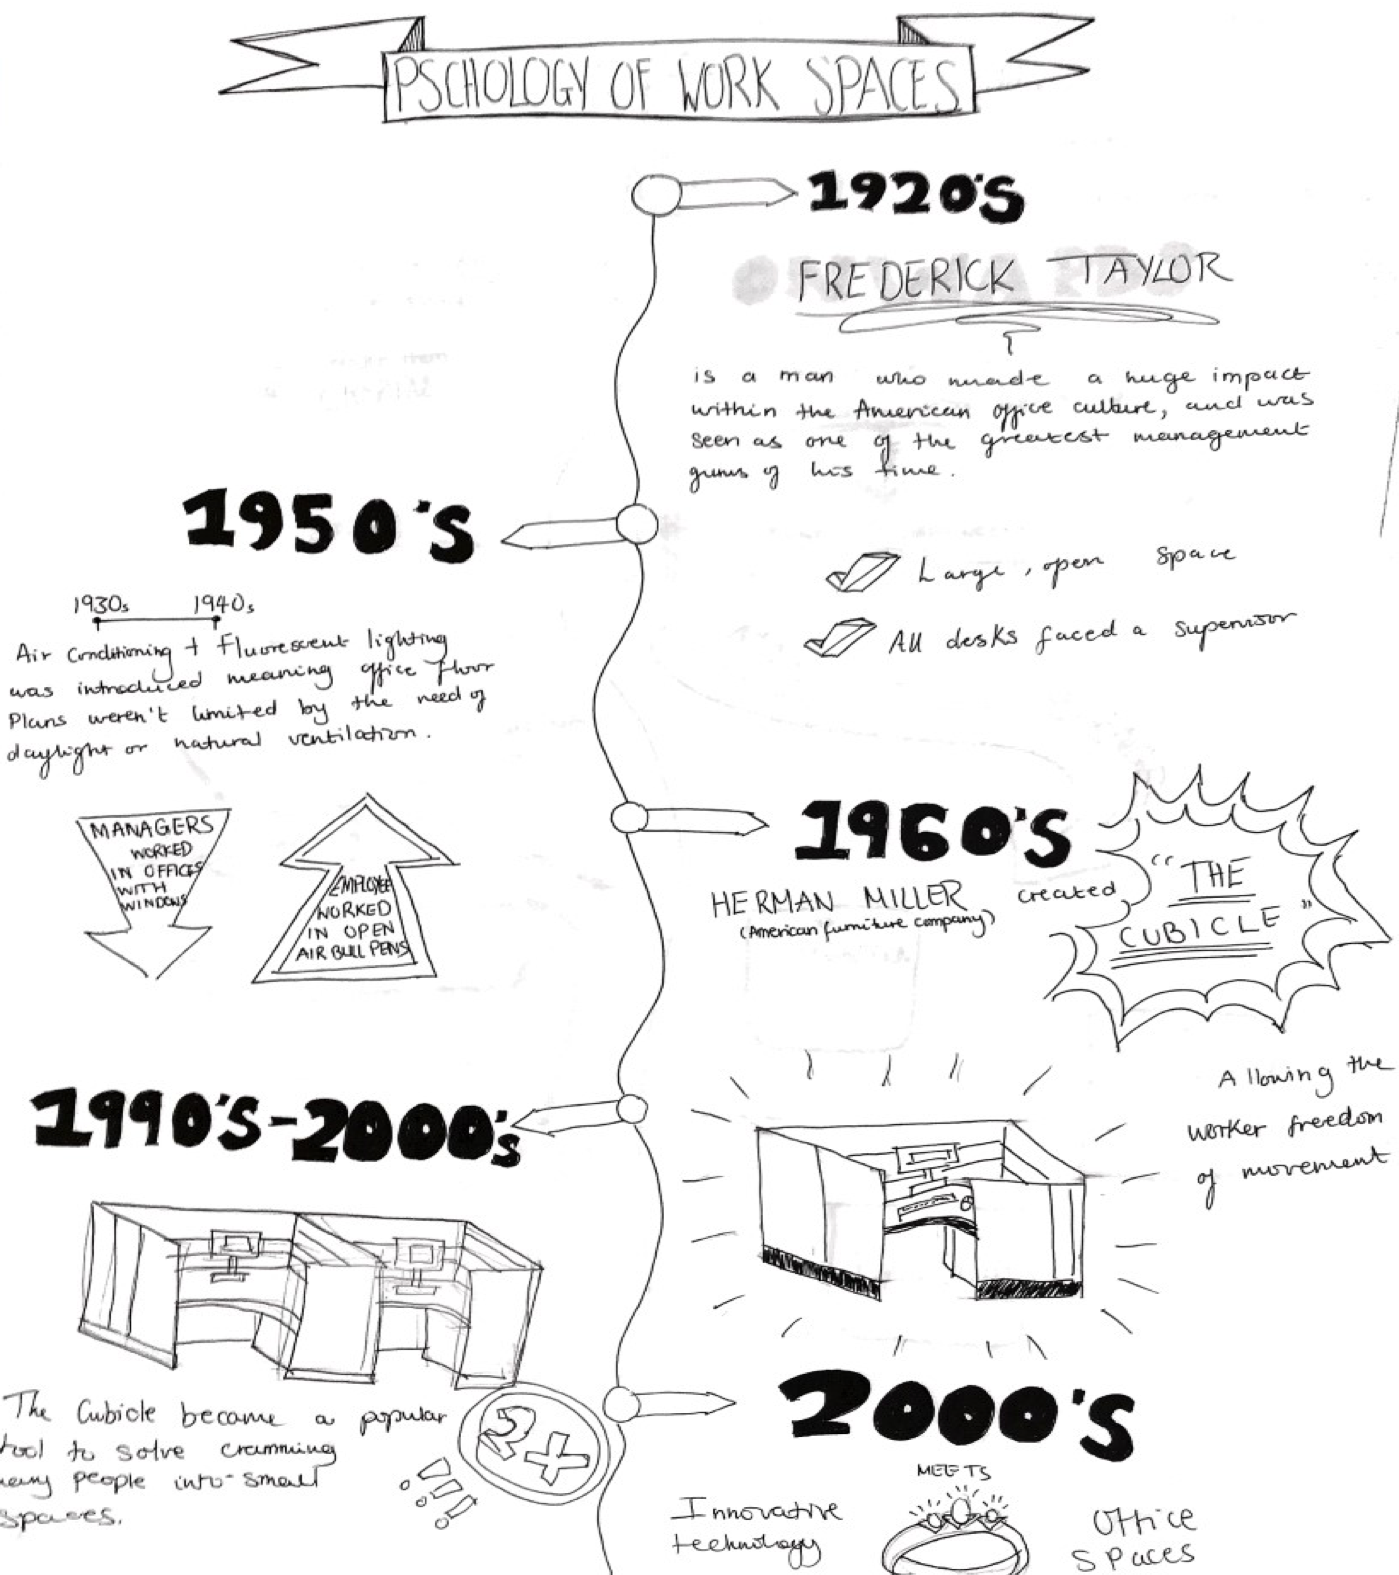 PSCHOLOGY OF WORK SPACES
1920'S
FREDERICK TAYLOR
is a man who made a huge impact
within the American office culture, and was
seen as one of the greatest management
gurus of his time.
Large, open space
All desks faced a supervisor
1950'S
1930s 1940s
Air Conditioning + Fluorescent lighting
was introduced meaning office floor
Plans weren't limited by the need of
daylight or natural ventilation.
MANAGERS
WORKED
IN OFFICES
WITH
WINDOWS
EMPLOYEE
WORKED
IN OPEN
AIR BULL PENS
1960'S
HERMAN MILLER created
(American furniture company)
"THE
CUBICLE"
Allowing the
worker freedom
of movement
1990'S-2000's
The Cubicle became a popular
tool to solve cramming
many people into small
spaces.
2x
!!!
2000'S
MEETS
Innovative
technology
Office
Spaces